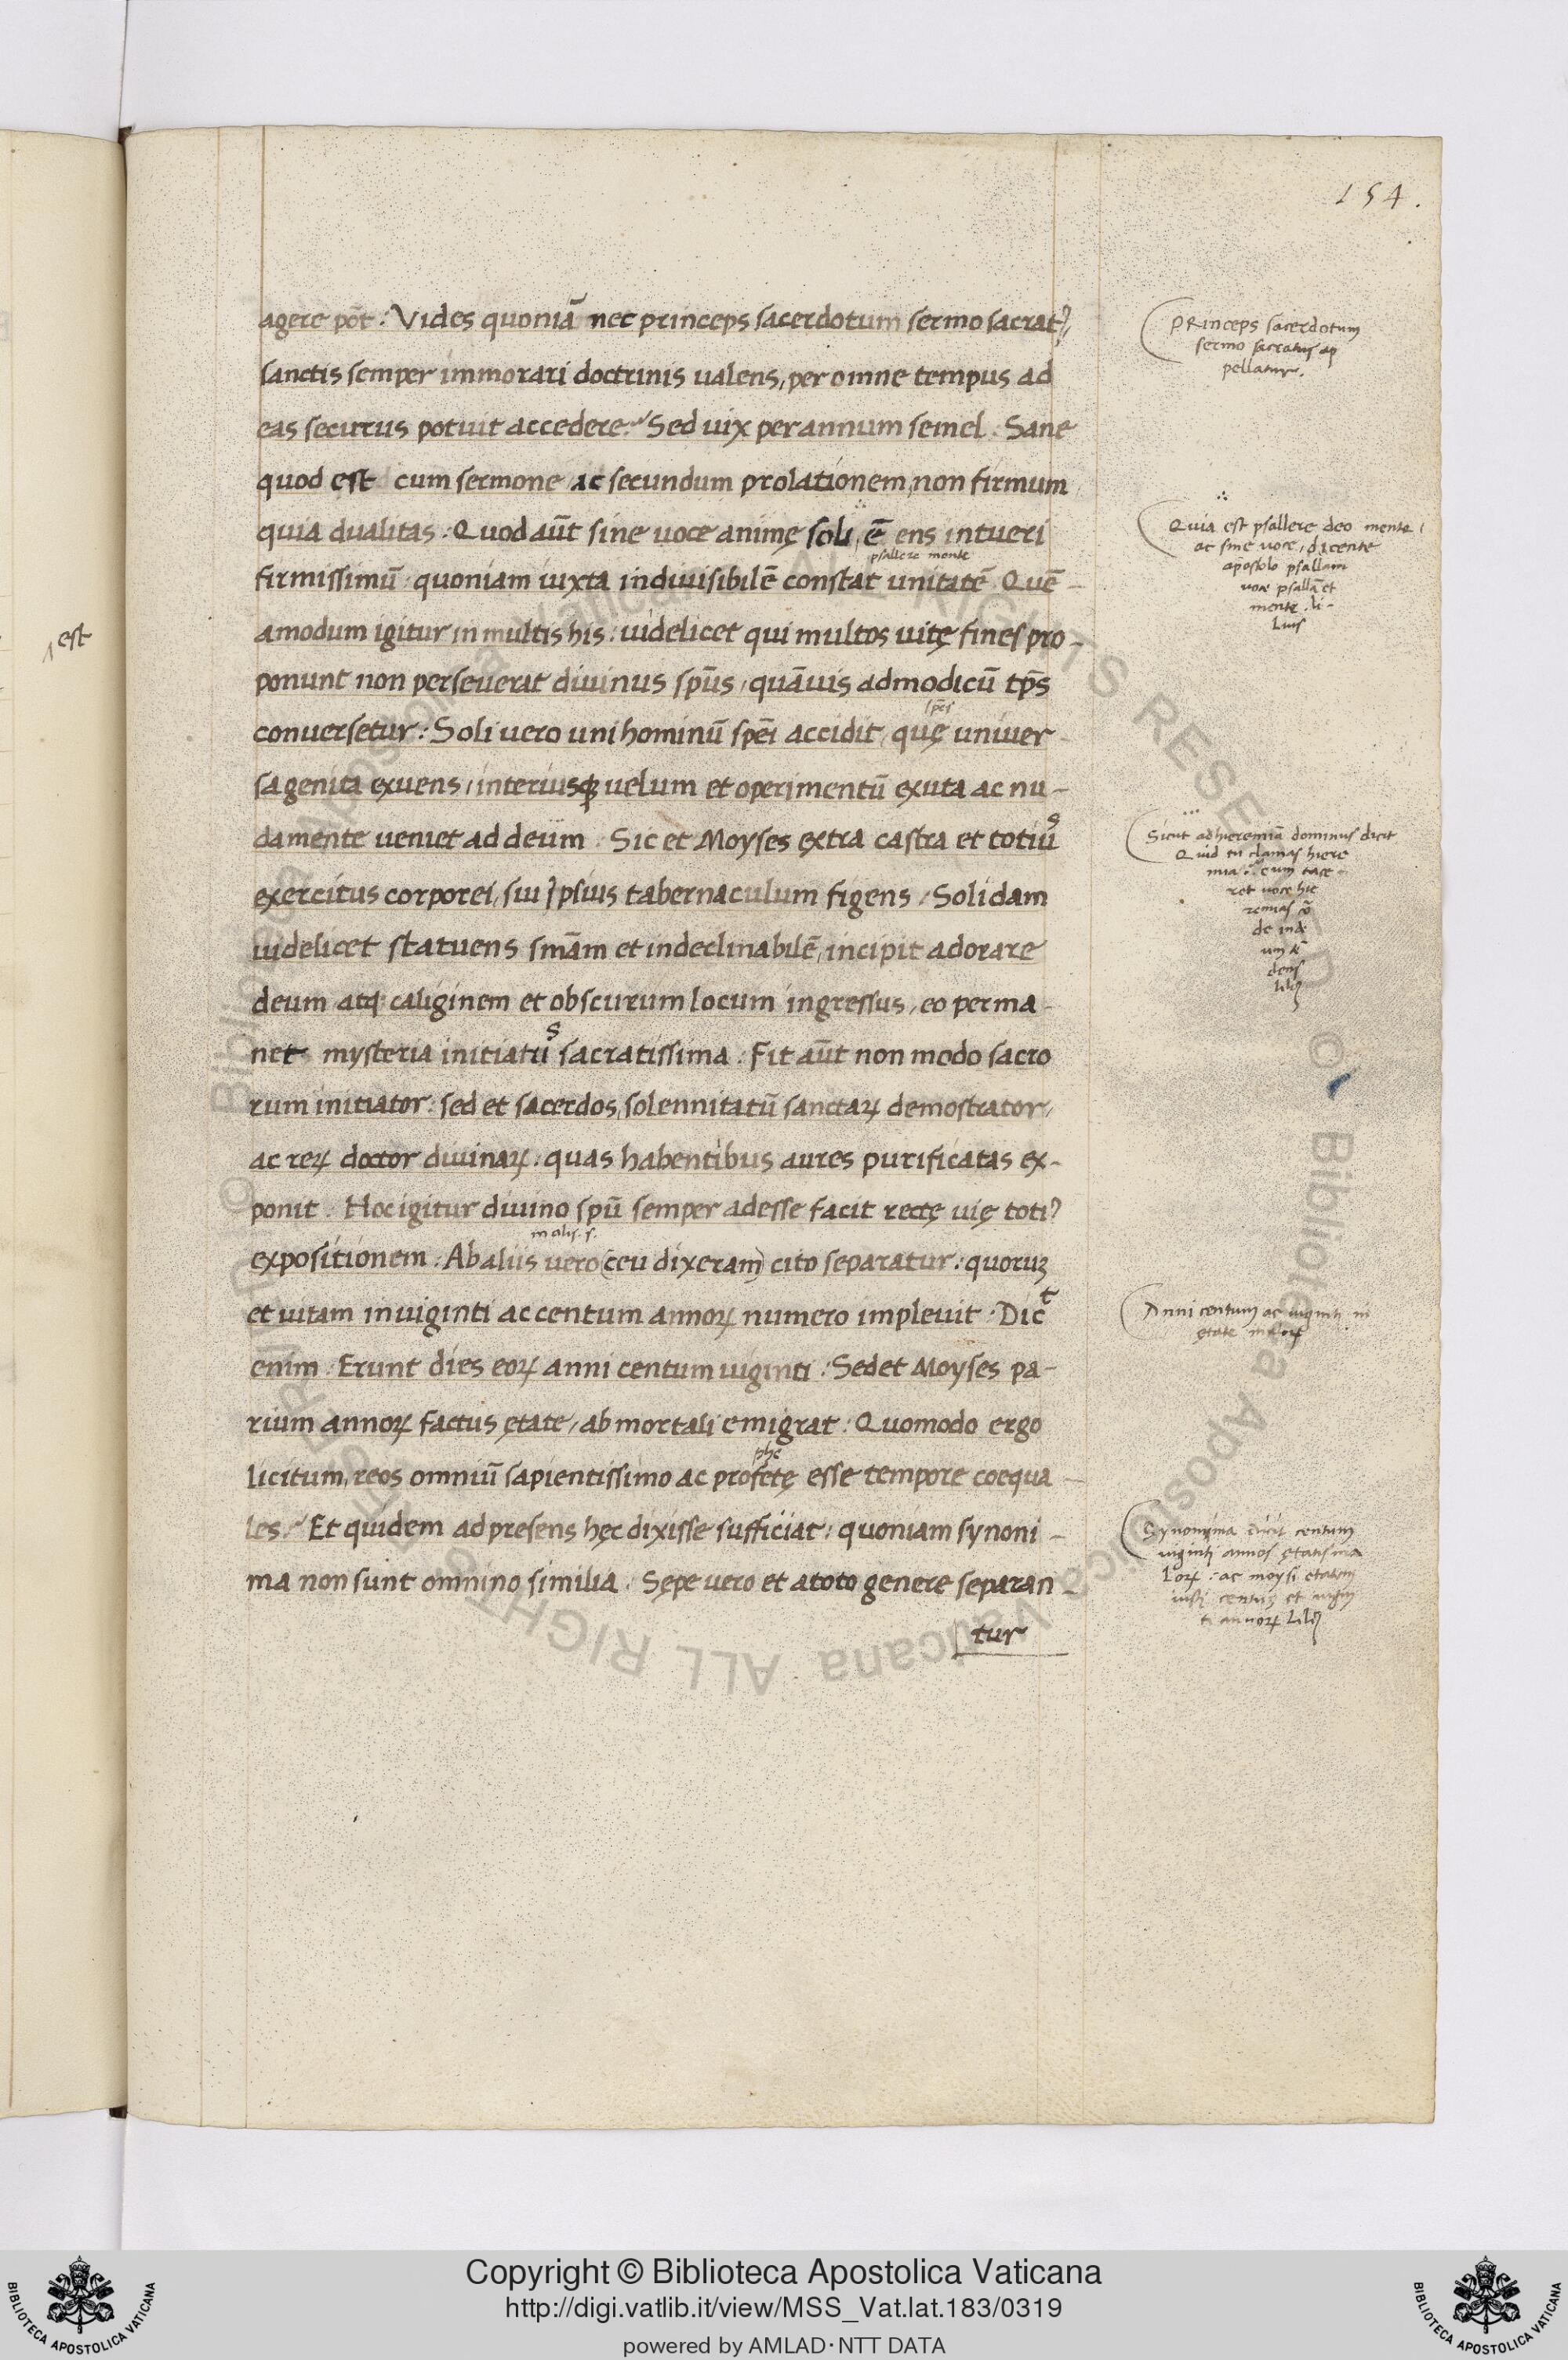 154.
agere pōt : Vides quoniā nec princeps sacerdotum sermo sacratꝰ,
sanctis semper immorari doctrinis ualens, per omne tempus ad
eas securus potuit accedere? Sed uix per annum semel : Sane
quod est cum sermone ac secundum prolationem, non firmum
quia dualitas : Quod aūt sine uoce animę soli, ē ens intueri
psallere mente
firmissimū : quoniam iuxta indiuisibilē constat unitatē. Quē-
amodum igitur in multis his : uidelicet qui multos uitę fines pro-
ponunt non perseuerat diuinus spūs, quāuis ad modicū tp̄s
conuersetur : Soli uero uni hominū spēi accidit, quę uniuer-
spēs
sa genita exuens, interiusqꝫ uelum et operimentū exuta ac nu-
damente ueniet ad deum : Sic et Moyses extra castra et totius
exercitus corporei, sui ipsius tabernaculum figens : Solidam
uidelicet statuens sm̄am et indeclinabilē, incipit adorare
deum atqꝫ caliginem et obscurum locum ingressus, eo perma-
net mysteria initiatus sacratissima : Fit aūt non modo sacro
rum initiator : sed et sacerdos, solennitatū sanctaꝝ demostrator,
ac reꝝ doctor diuinaꝝ : quas habentibus aures purificatas ex-
ponit : Hoc igitur diuino spū semper adesse facit rectę uię totiꝰ
malis. s.
expositionem : Ab aliis uero (ceu dixeram) cito separatur : quoruꝫ
et uitam in uiginti ac centum annoꝝ numero impleuit : Dicᵗ
enim : Erunt dies eoꝝ anni centum uiginti : Sed et Moyses pa-
rium annoꝝ factus ętate, ab mortali emigrat : Quomodo ergo
phe
licitum, reos omniū sapientissimo ac profetę esse tempore coequa-
les? Et quidem ad presens hęc dixisse sufficiat : quoniam synoni-
ma non sunt omnino similia : Sępe uero et a toto genere separan-
tur
est
PRinceps sacerdotum
sermo sacratus ap
pellatur.
Quia est psallere deo mente,
ac sine uoce, dicente
apostolo psallam
uoce psallā et
mente. li-
Lius
Sicut ad hieremiā dominus dicit
Quid tu clamas hiere
mia : cum tace-
ret uoce hie
remias
Anni centum ac uiginti in
ętate
Synonyma dicit centum
uiginti annos ętatis ma
loꝝ : ac moysi etatem
iusti centuꝫ et uigin
ti annoꝝ
Copyright © Biblioteca Apostolica Vaticana
http://digi.vatlib.it/view/MSS_Vat.lat.183/0319
powered by AMLAD·NTT DATA
BIBLIOTECA APOSTOLICA VATICANA
BIBLIOTECA APOSTOLICA VATICANA
© Biblioteca Apostolica Vaticana ALL RIGHTS RESERVED
© Biblioteca Apostolica Vaticana ALL RIGHTS RESERVED